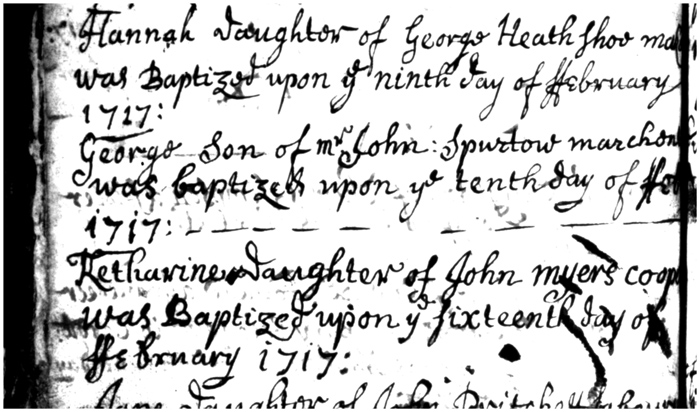 Hannah daughter of George Heath shoe ma
was Baptized upon ye ninth day of ffebruary
1717:
George Son of mr John: Spurtow marchen
was baptized upon ye tenth day of ffeb
1717:
Ketharine daughter of John myers coop
was Baptized upon ye sixteenth day of
ffebruary 1717:
Jane daughter of John Pritchett